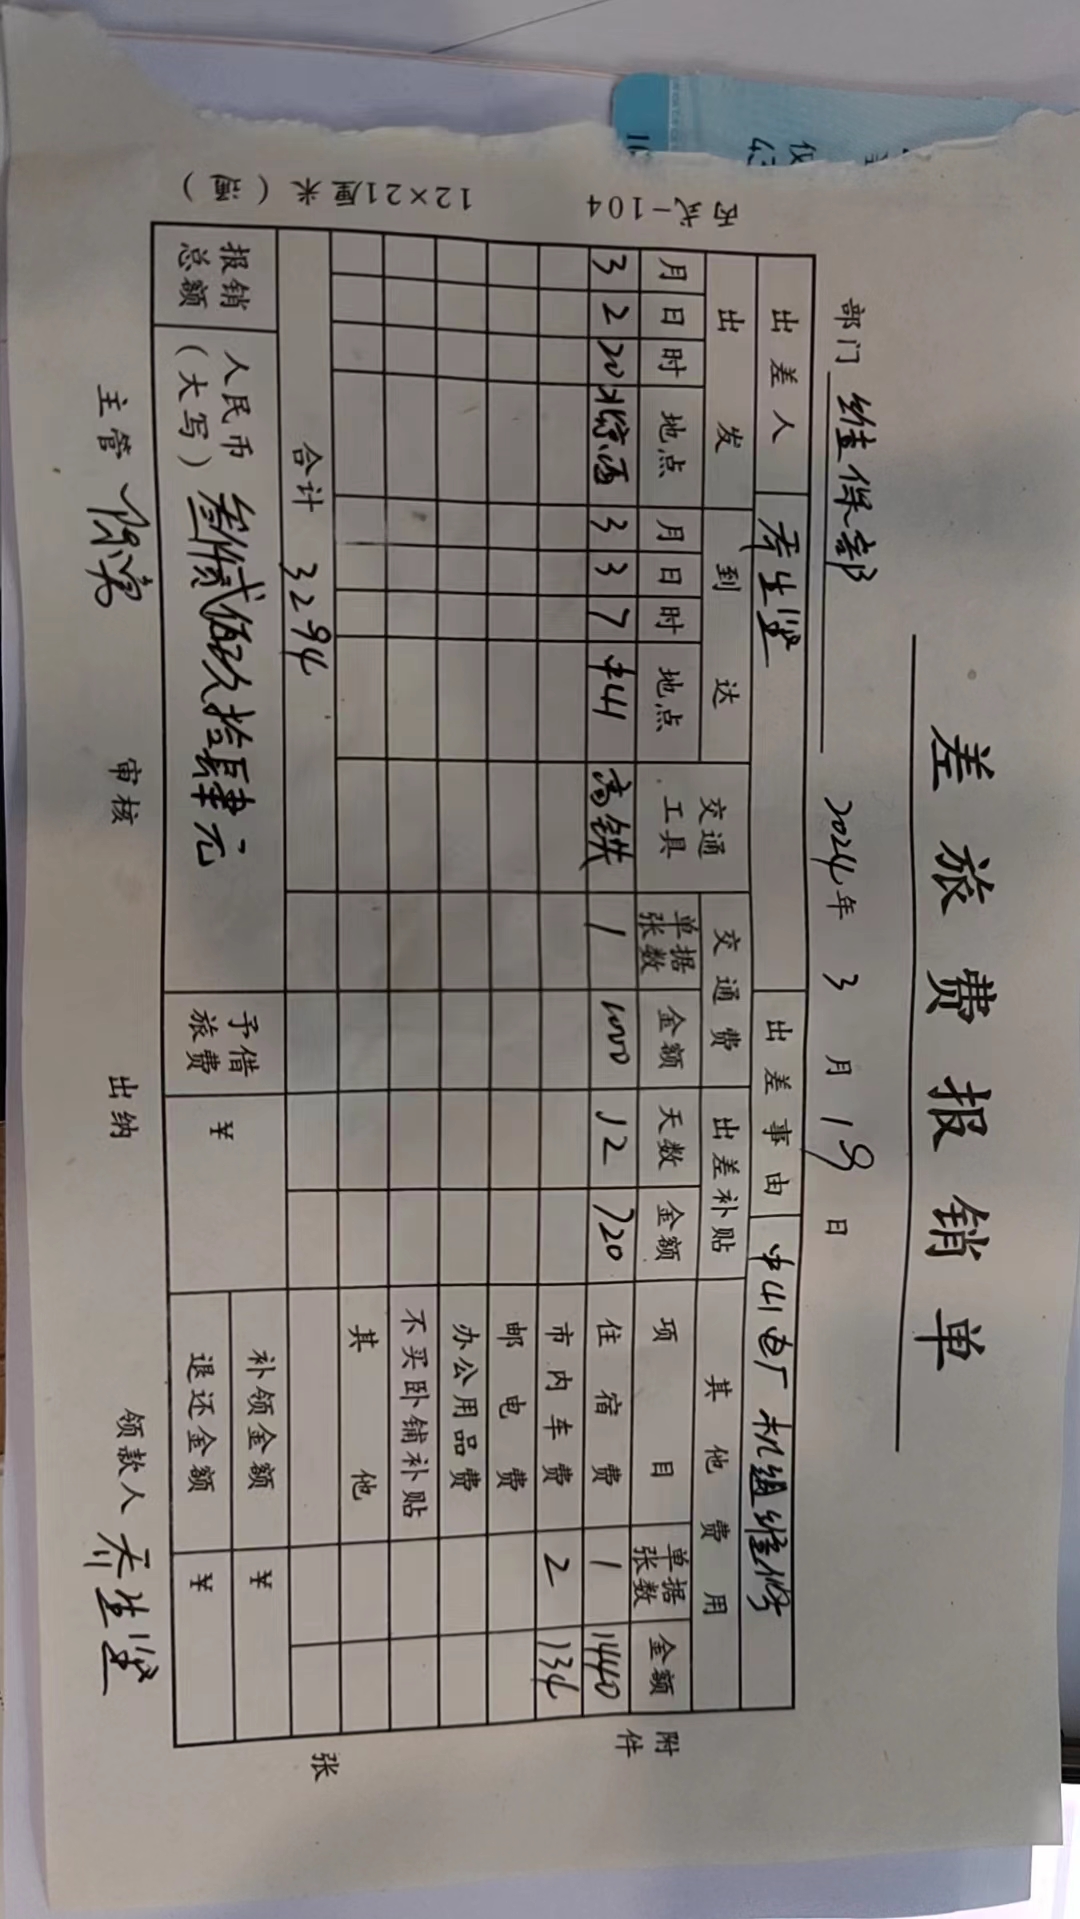 差旅费报销单
部门 维保部 2024年 3月 19日
出差人 乔生坚 出差事由 中山电厂机组维修
出发 到达 交通工具 交通费 出差补贴 其他费用
月 日 时 地点 月 日 时 地点 单据张数 金额 天数 金额 项目 单据张数 金额
3 2 20 北京西 3 3 7 中山 高铁 1 1000 12 720 住宿费 1 1440
市内车费 2 134
邮电费
办公用品费
不买卧铺补贴
其他
合计 3294
报销总额 人民币(大写) 叁仟贰佰玖拾肆元 予借旅费 ¥ 补领金额 ¥
退还金额 ¥
主管 审核 出纳 领款人 乔生坚
附件 张
丙式-104 12×21厘米(蓝)